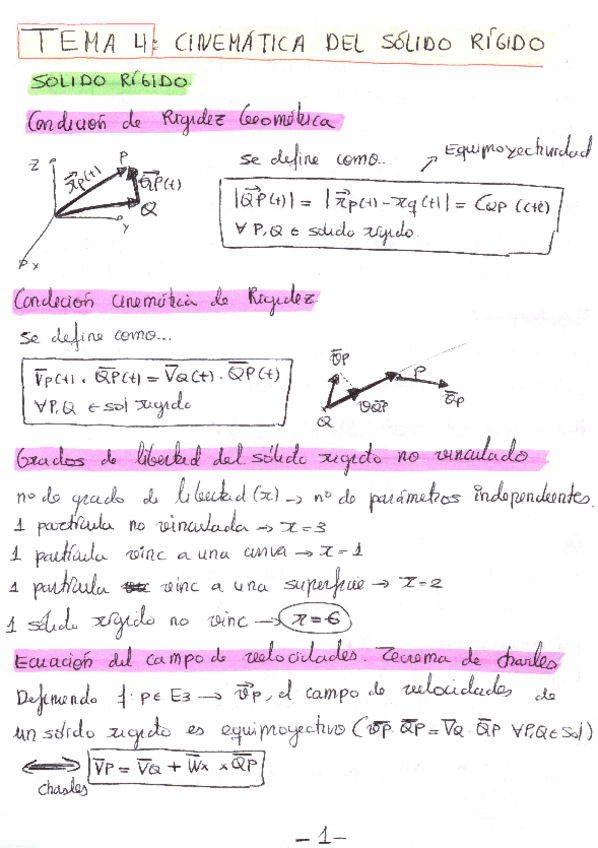 TEMA 4: CINEMÁTICA DEL SÓLIDO RÍGIDO
SOLIDO RÍGIDO
Condición de Rigidez Geométrica
Z
P
x⃗p(t)
Q⃗P(t)
Q
Y
X
Se define como..
Equiproyectividad
|Q⃗P(t)| = |x⃗p(t) - xq(t)| = CQP (cte)
∀ P,Q ∈ solido rígido.
Condición cinemática de Rigidez.
Se define como...
V̄P(t) · Q̄P(t) = V̄Q(t) · Q̄P(t)
∀P,Q ∈ sol rígido
v̄P
P
Q
Grados de libertad del sólido rígido no vinculado
nº de grado de libertad (x) → nº de parámetros independientes.
1 partícula no vinculada → x=3
1 partícula vinc a una curva → x=1
1 partícula vinc a una superficie → x=2
1 sólido rígido no vinc → x=6
Ecuación del campo de velocidades. Teorema de Charles
Definiendo f: P∈ E3 → v⃗P, el campo de velocidades de
un sólido rígido es equiproyectivo (v̄P · Q̄P = V̄Q · Q̄P ∀P,Q∈ Sol)
⟷ V̄P = V̄Q + W̄x x Q̄P
Chasles
-1-